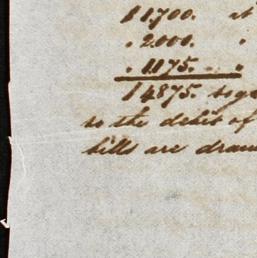 $1.700. at
" 2.000. "
" 1.175. "
$4875. toge
to the debit of
bills are draw